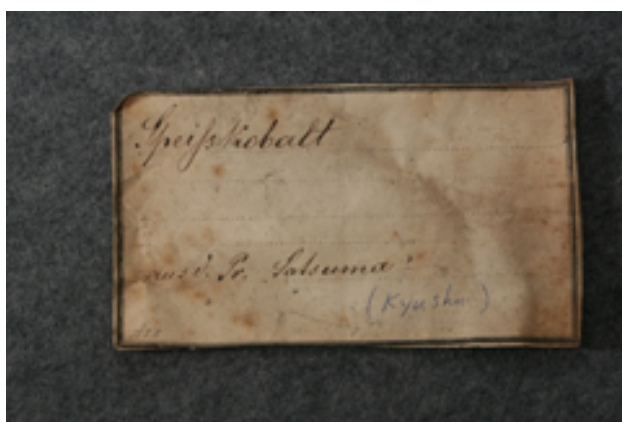 Speißkobalt
aus d. Pr. Satsuma
(Kyushu)